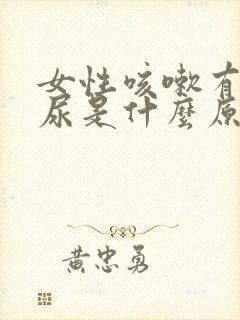 女性咳嗽有
尿是什麼原
黄忠勇